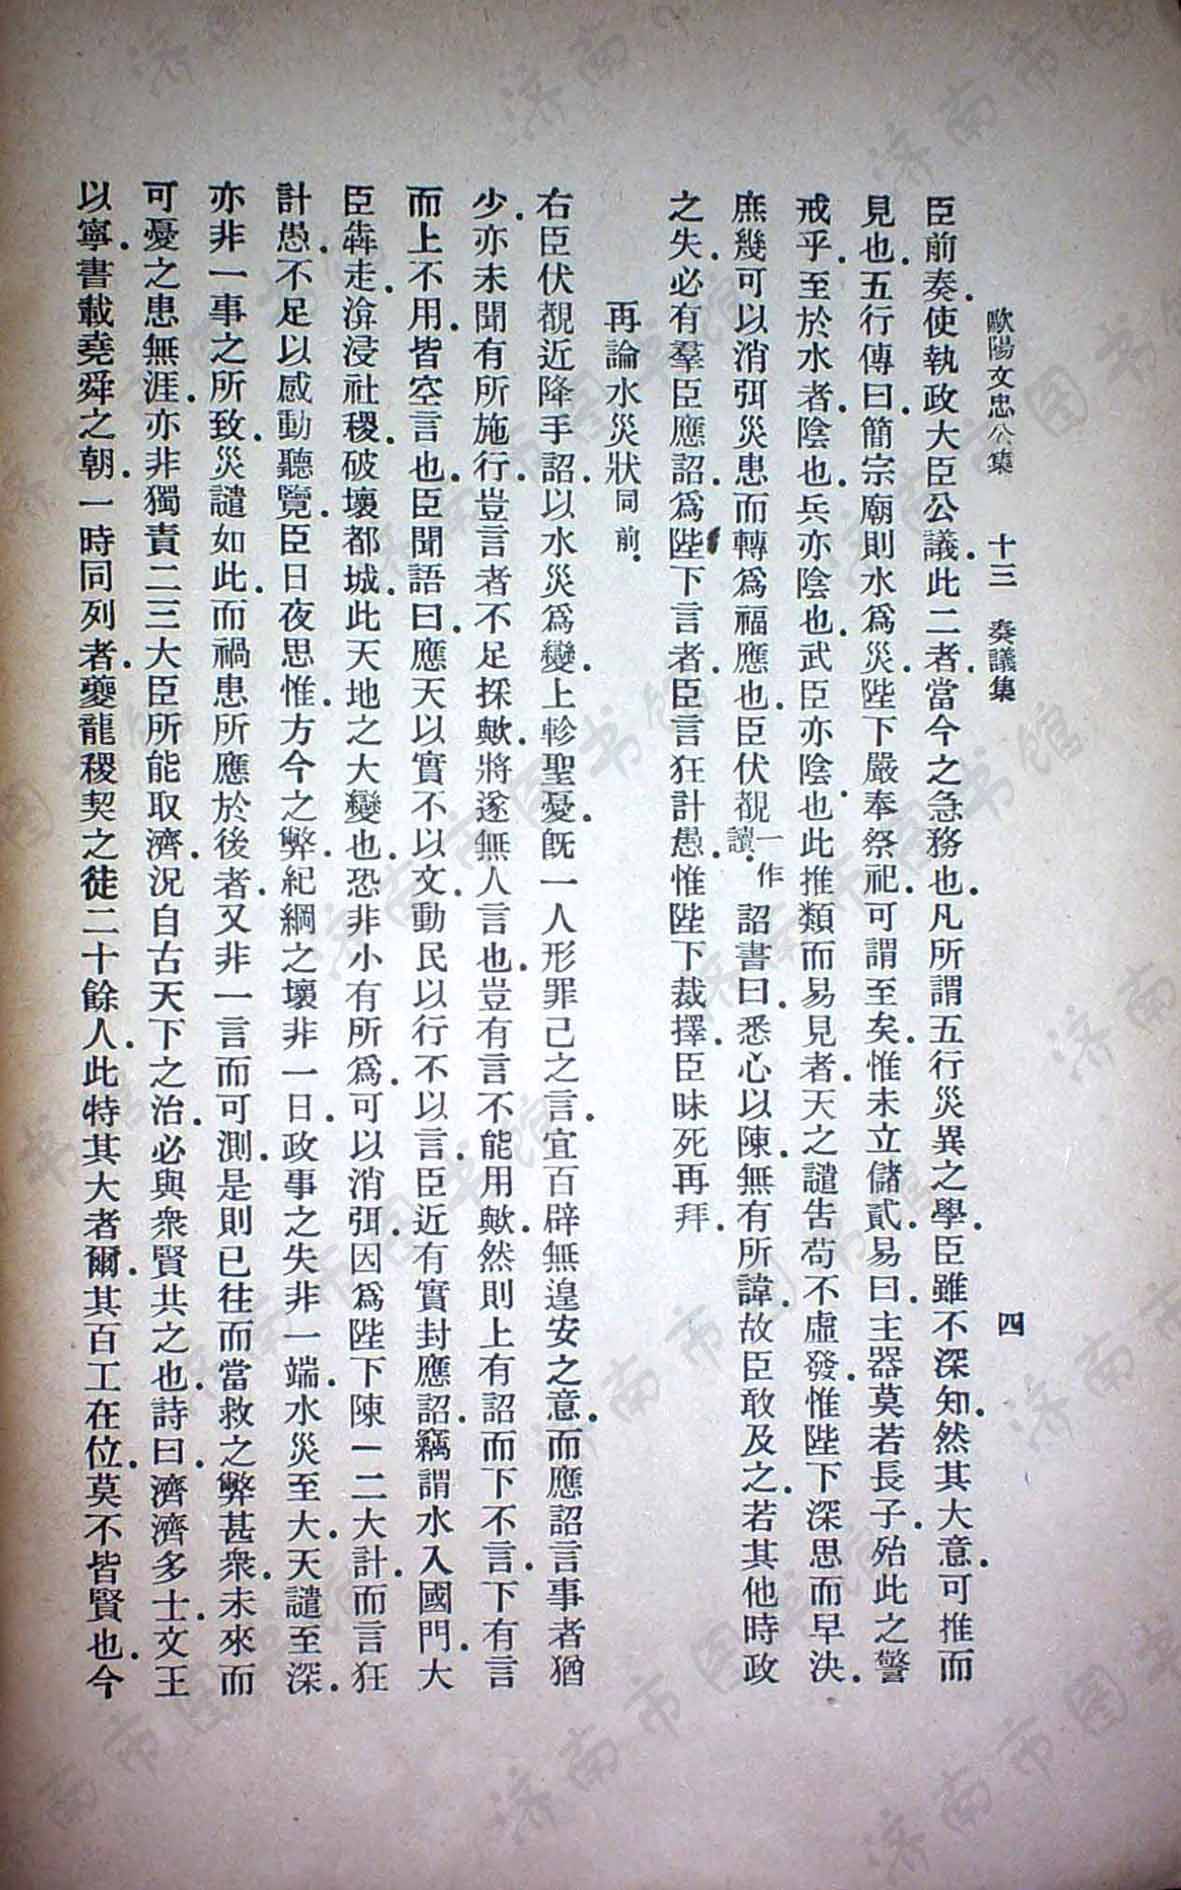 歐陽文忠公集　十三　奏議集　四
臣前奏使執政大臣公議此二者當今之急務也凡所謂五行災異之學臣雖不深知然其大意可推而
見也五行傳曰簡宗廟則水爲災陛下嚴奉祭祀可謂至矣惟未立儲貳易曰主器莫若長子殆此之警
戒乎至於水者陰也兵亦陰也武臣亦陰也此推類而易見者天之譴告苟不虛發惟陛下深思而早決
庶幾可以消弭災患而轉爲福應也臣伏覩一作讀詔書曰悉心以陳無有所諱故臣敢及之若其他時政
之失必有羣臣應詔爲陛下言者臣言狂計愚惟陛下裁擇臣昧死再拜
再論水災狀同前
右臣伏覩近降手詔以水災爲變上軫聖憂旣一人形罪己之言宜百辟無遑安之意而應詔言事者猶
少亦未聞有所施行豈言者不足採歟將遂無人言也豈有言不能用歟然則上有詔而下不言下有言
而上不用皆空言也臣聞語曰應天以實不以文動民以行不以言臣近有實封應詔竊謂水入國門大
臣犇走渰浸社稷破壞都城此天地之大變也恐非小有所爲可以消弭因爲陛下陳一二大計而言狂
計愚不足以感動聽覽臣日夜思惟方今之弊紀綱之壞非一日政事之失非一端水災至大天譴至深
亦非一事之所致災譴如此而禍患所應於後者又非一言而可測是則已往而當救之弊甚衆未來而
可憂之患無涯亦非獨責二三大臣所能取濟況自古天下之治必與衆賢共之也詩曰濟濟多士文王
以寧書載堯舜之朝一時同列者夔龍稷契之徒二十餘人此特其大者爾其百工在位莫不皆賢也今